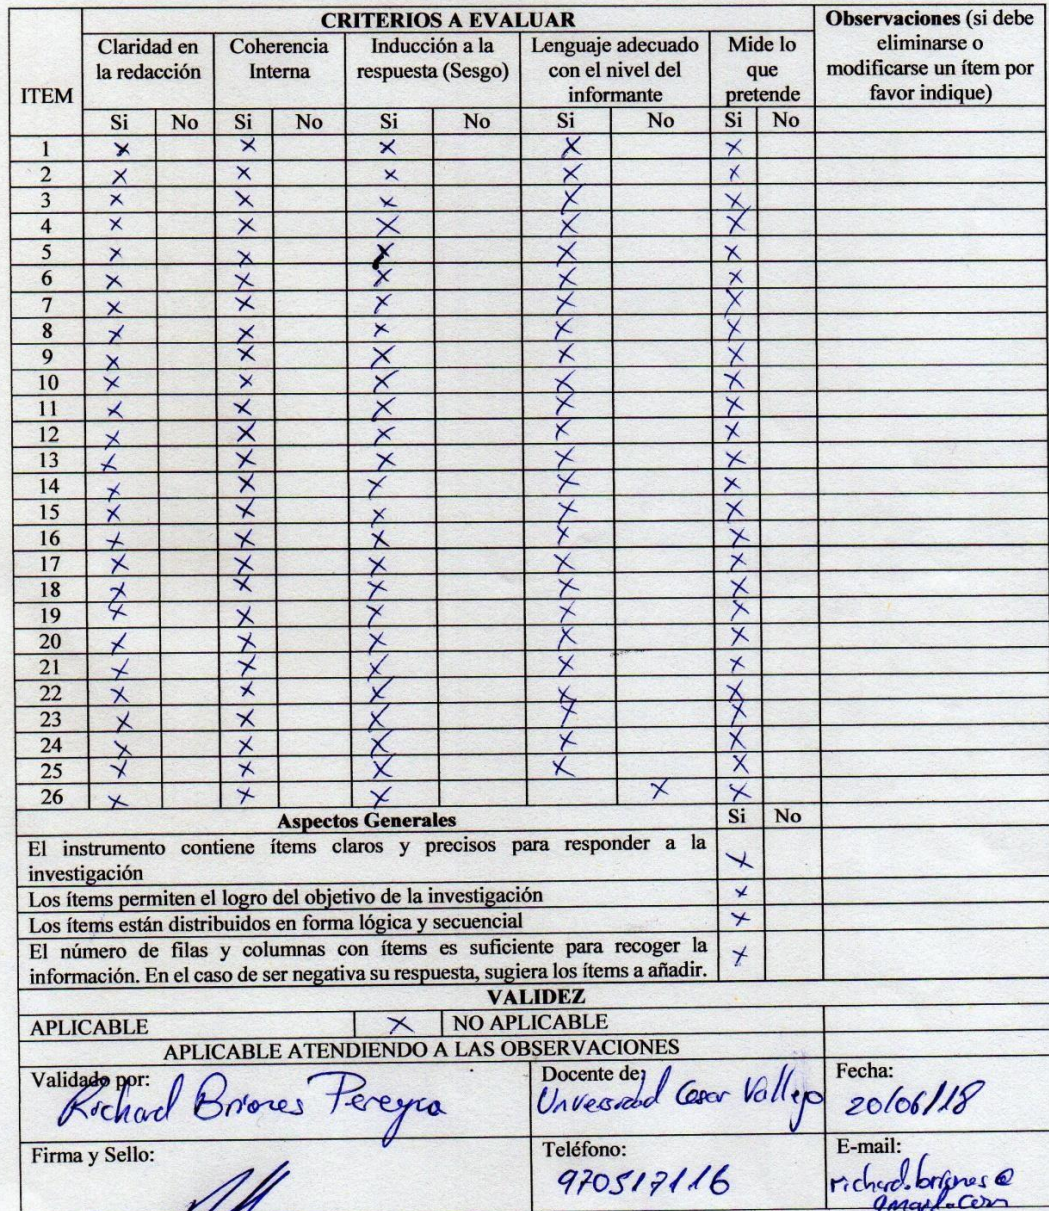 CRITERIOS A EVALUAR
Observaciones (si debe eliminarse o modificarse un ítem por favor indique)
ITEM
Claridad en la redacción
Coherencia Interna
Inducción a la respuesta (Sesgo)
Lenguaje adecuado con el nivel del informante
Mide lo que pretende
Si No Si No Si No Si No Si No
1 X X X X X
2 X X X X X
3 X X X X X
4 X X X X X
5 X X X X X
6 X X X X X
7 X X X X X
8 X X X X X
9 X X X X X
10 X X X X X
11 X X X X X
12 X X X X X
13 X X X X X
14 X X X X X
15 X X X X X
16 X X X X X
17 X X X X X
18 X X X X X
19 X X X X X
20 X X X X X
21 X X X X X
22 X X X X X
23 X X X X X
24 X X X X X
25 X X X X X
26 X X X X X
Aspectos Generales Si No
El instrumento contiene ítems claros y precisos para responder a la
investigación X
Los ítems permiten el logro del objetivo de la investigación X
Los ítems están distribuidos en forma lógica y secuencial X
El número de filas y columnas con ítems es suficiente para recoger la
información. En el caso de ser negativa su respuesta, sugiera los ítems a añadir. X
VALIDEZ
APLICABLE X NO APLICABLE
APLICABLE ATENDIENDO A LAS OBSERVACIONES
Validado por:
Richard Briones Pereyra
Docente de:
Universidad Cesar Vallejo
Fecha:
20/06/18
Firma y Sello:
Teléfono:
970517116
E-mail:
richard.briones@
gmail.com